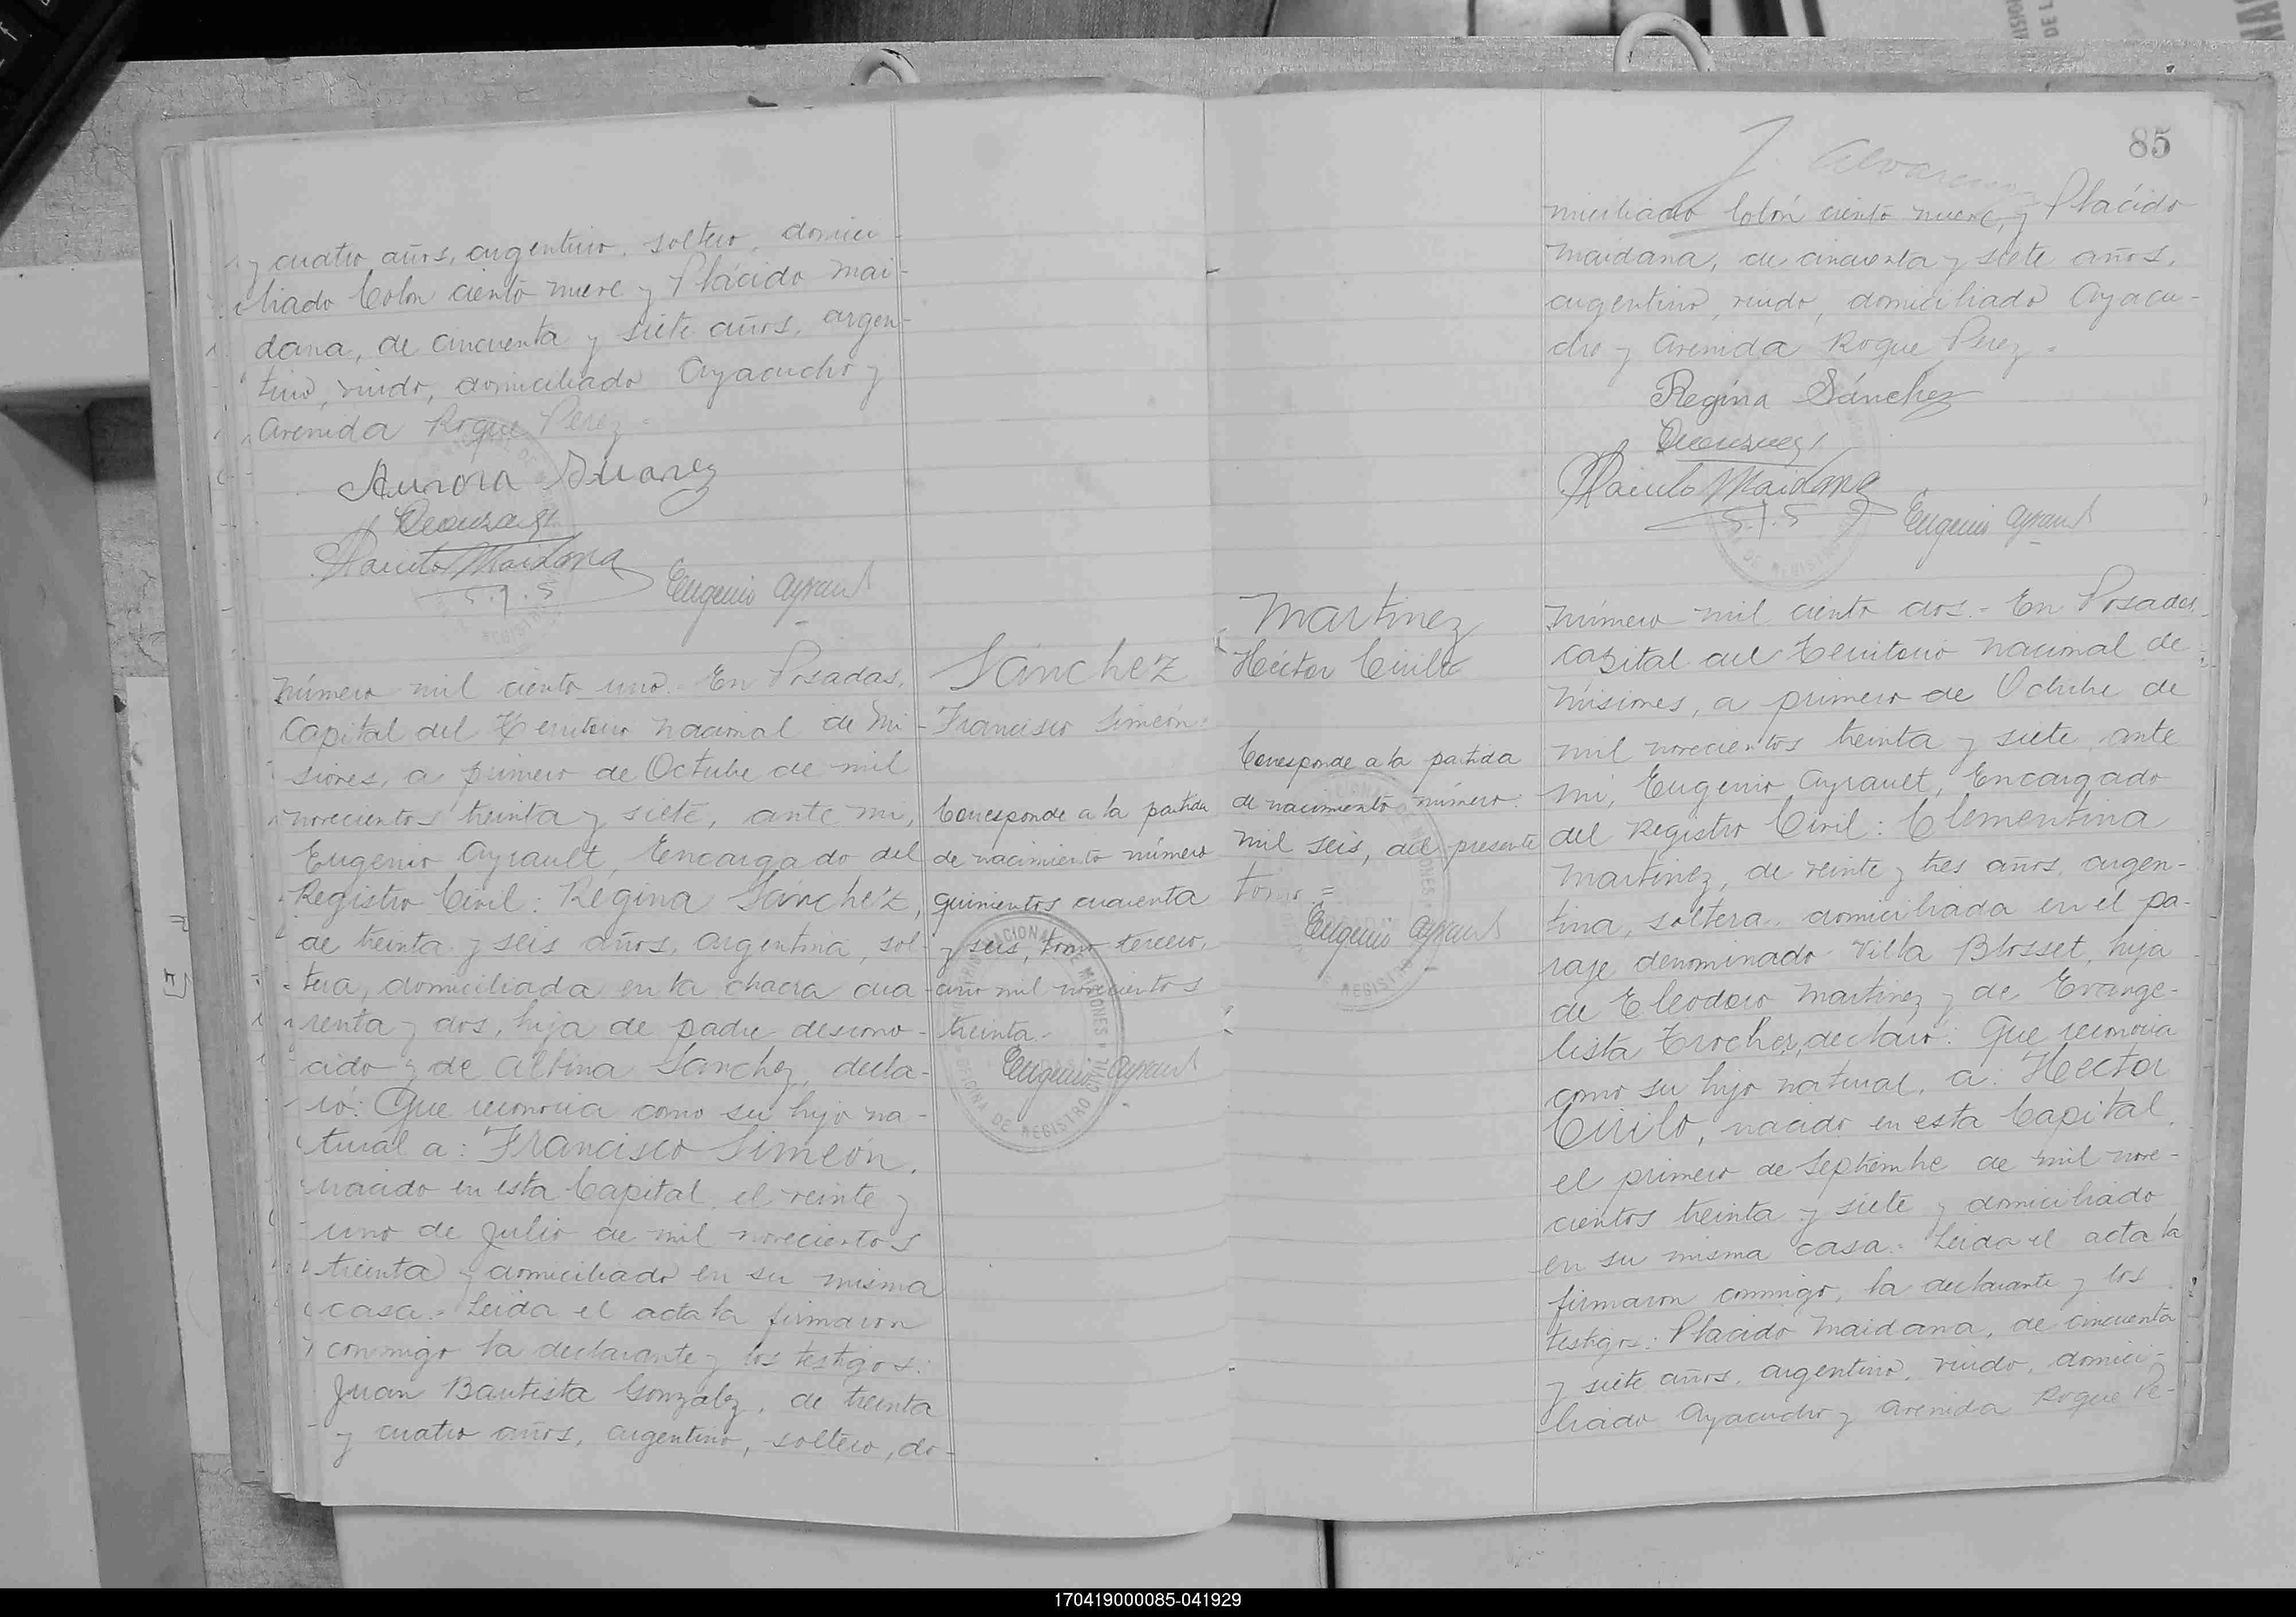 y cuatro años, argentino, soltero, domici-
liado Colon ciento nueve y Plácido Mai-
dana, de cincuenta y siete años, argen-
tino, viudo, domiciliado Ayacucho y
Avenida Roque Perez =
Aurora Suarez
Placido Maidana
Eugenio Ayrault
Número mil ciento uno.- En Posadas,
Capital del Territorio Nacional de Mi-
siones, a primero de Octubre de mil
novecientos treinta y siete, ante mi,
Eugenio Ayrault, Encargado del
Registro Civil: Regina Sánchez,
de treinta y seis años, argentina, sol-
tera, domiciliada en la chacra cua-
renta y dos, hija de padre descono-
cido y de Albina Sanchez, decla-
ró: Que reconocia como su hijo na-
tural a: Francisco Simeón,
nacido en esta Capital el veinte y
uno de Julio de mil novecientos
treinta y domiciliado en su misma
casa.- Leida el acta la firmaron
conmigo la declarante y los testigos:
Juan Bautista Gonzalez, de treinta
y cuatro años, argentino, soltero, do-
Sánchez
Francisco Simeón
Corresponde a la partida
de nacimiento número
quinientos cuarenta
y seis, tomo tercero,
año mil novecientos
treinta.-
Eugenio Ayrault
OFICINA DE REGISTRO CIVIL
85
J. Alvarenga
miciliado Colón ciento nueve, y Plácido
Maidana, de cincuenta y siete años,
argentino, viudo, domiciliado Ayacu-
cho y Avenida Roque Perez =
Regina Sánchez
Placido Maidana
Eugenio Ayrault
Martinez
Héctor Cirilo
Corresponde a la partida
de nacimiento número
mil seis, del presente
tomo =
Eugenio Ayrault
Número mil ciento dos.- En Posadas,
capital del Territorio Nacional de
Misiones, a primero de Octubre de
mil novecientos treinta y siete, ante
mi, Eugenio Ayrault, Encargado
del Registro Civil: Clementina
Martinez, de veinte y tres años, argen-
tina, soltera, domiciliada en el pa-
raje denominado Villa Blosset, hija
de Eleodoro Martinez y de Evange-
lista Trocher, declaró: Que reconocia
como su hijo natural, a: Hector
Cirilo, nacido en esta Capital,
el primero de Septiembre de mil nove-
cientos treinta y siete y domiciliado
en su misma casa.- Leida el acta la
firmaron conmigo, la declarante y los
testigos: Placido Maidana, de cincuenta
y siete años, argentino, viudo, domici-
liado Ayacucho y Avenida Roque Pe-
170419000085-041929